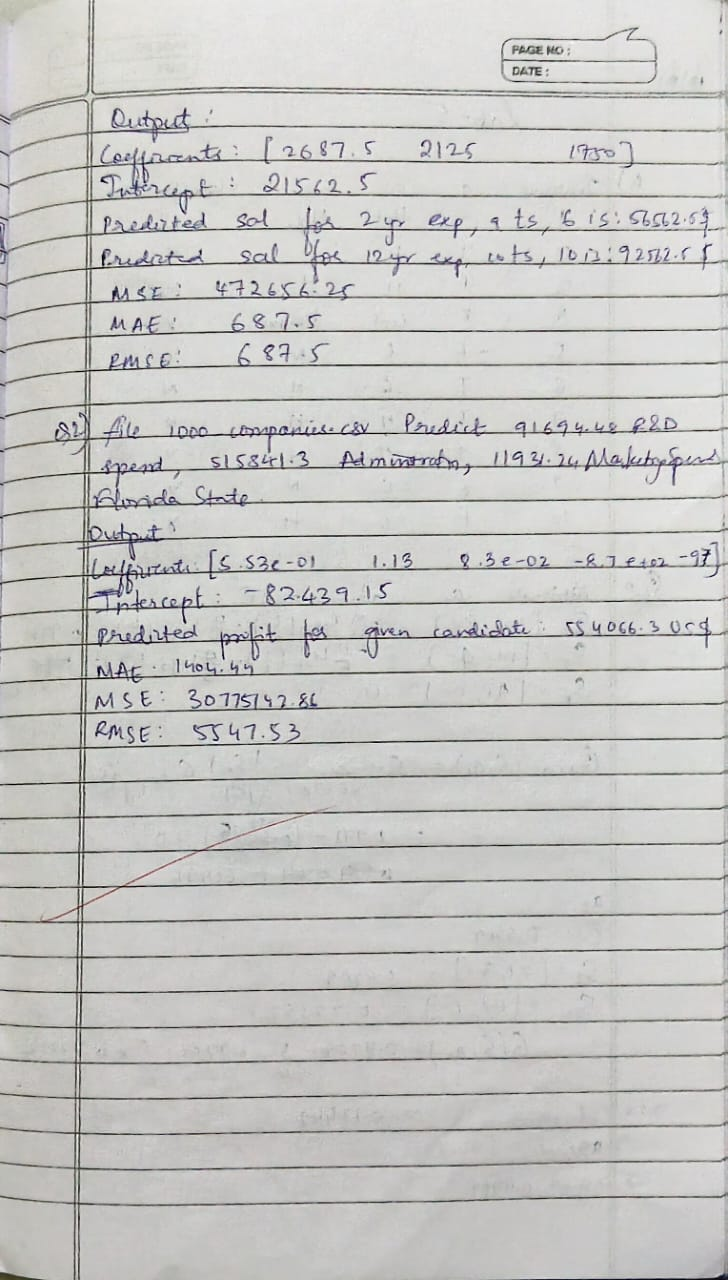 PAGE NO:
DATE:
Output:
Coefficients: [2687.5 2125 1750]
Intercept: 21562.5
Predicted sal for 2 yr exp, 9 ts, 6 is: 56562.5$
Predicted sal for 12yr exp, 10 ts, 10 is: 92562.5 $
MSE: 472656.25
MAE: 687.5
RMSE: 687.5
Q2) file 1000 companies.csv Predict 91694.48 R&D
spend, 515841.3 Administratn, 11931.24 Marketing Spend
Florida State
Output:
Coefficients: [5.53e-01 1.13 8.3e-02 -8.7e+02 -97]
Intercept: -82439.15
Predicted profit for given candidate: 554066.3 US$
MAE: 1404.44
MSE: 30775142.86
RMSE: 5547.53